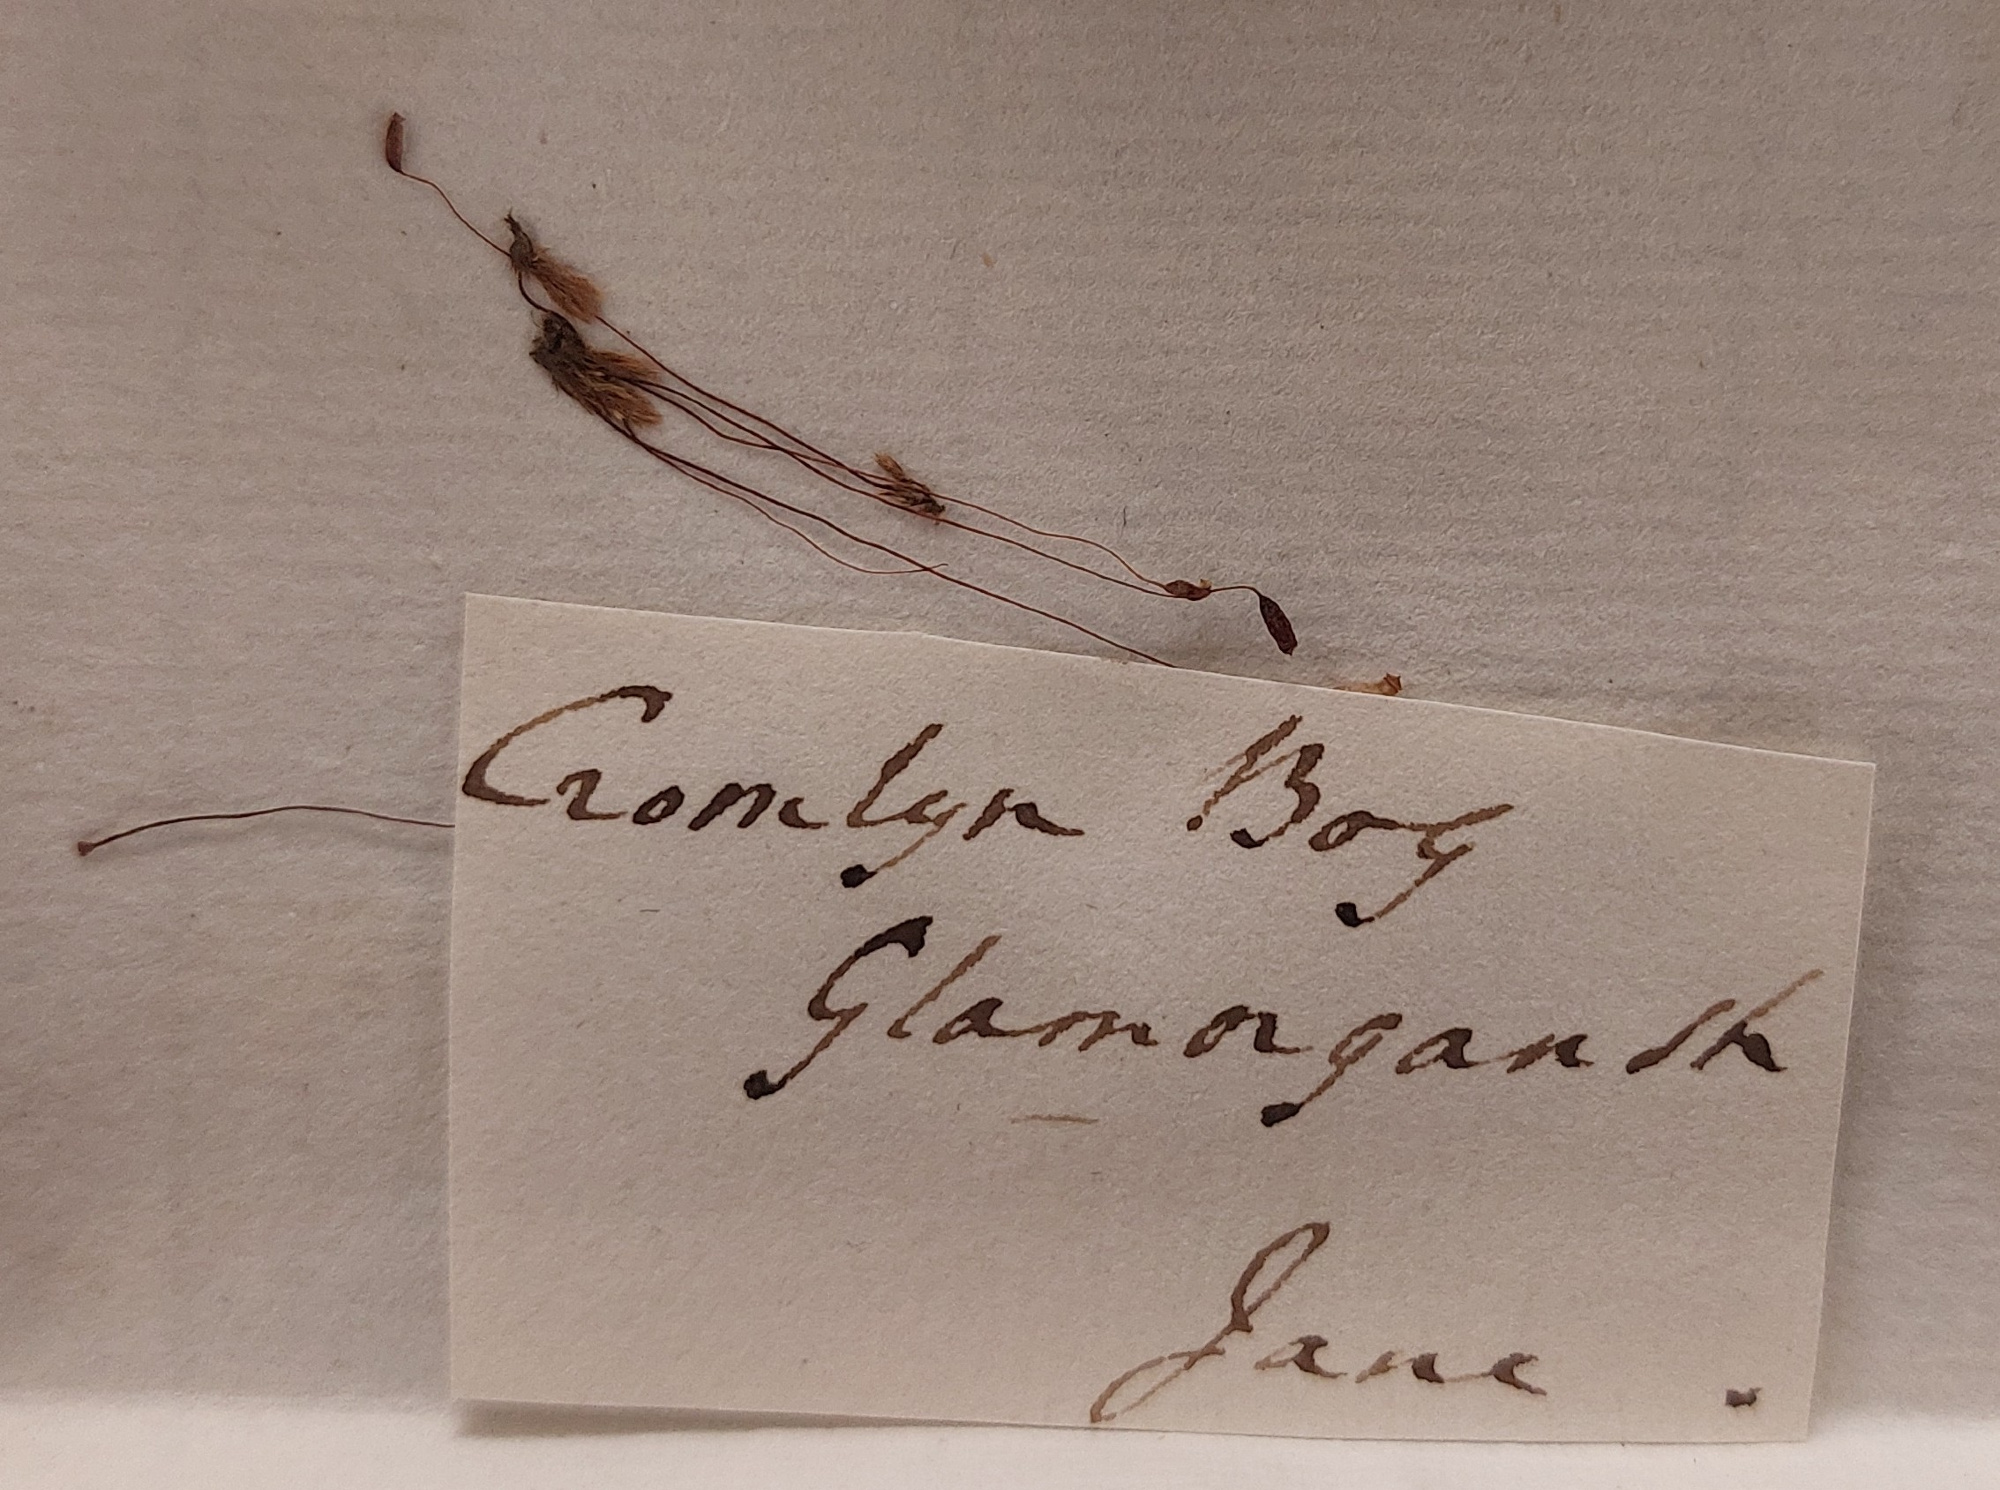 Cromlyn Bog
Glamorgansh
June.